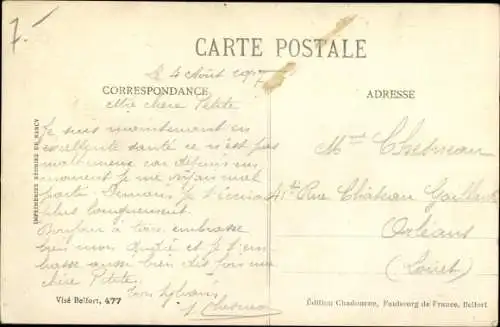 7.-
CARTE POSTALE
le 4 Août 1917
CORRESPONDANCE
ADRESSE
Ma chère Petite
Je suis maintenant en
excellente santé ce n'est pas
malheureux car depuis un
moment je me voyais mal
parti Demain je t'écrirai
plus longuement.
Bonjour à tous, embrasse
bien mon André et je t'em
brasse aussi bien des fois ma
chère Petite.
Ton Sylvain
Chesneau
Mme Chesneau
41 Rue Château Gaillard
Orléans
(Loiret)
IMPRIMERIES RÉUNIES DE NANCY
Visé Belfort, 477
Édition Chadourne, Faubourg de France, Belfort